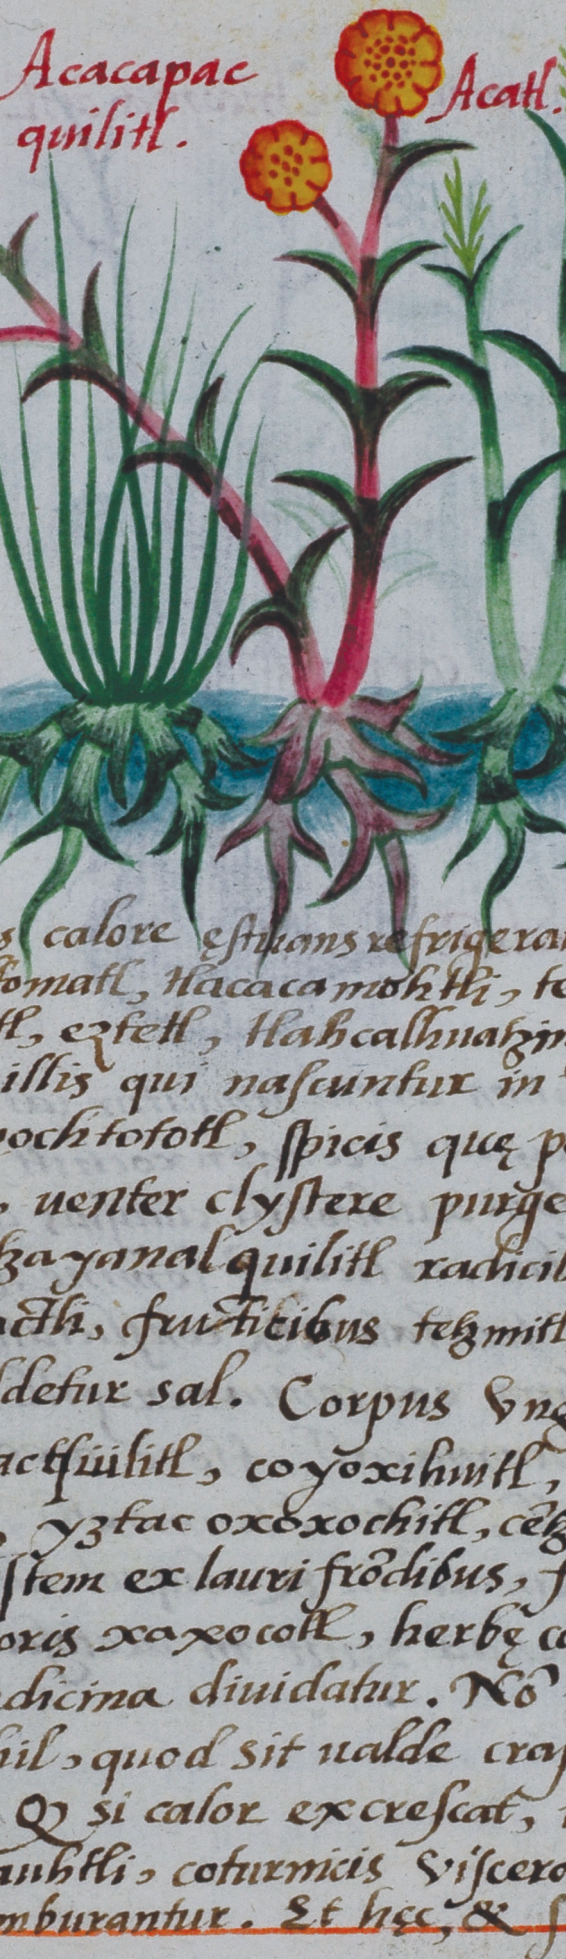 Acacapac
quilitl.
Acatl.
s calore ęstuans refrigera
tomatl, tlacacamohtli, te
tl, eztetl, tlahcalhuatzin
illis qui nascuntur in
ochtototl, spicis quę p
, uenter clystere purge
tzayanalquilitl radicib
actli, fruticibus tetzmitl
detur sal. Corpus Vng
coyoxihuitl,
, yztac oxoxochitl, cētz
stem ex lauri frōdibus, f
oris xaxocotl, herbę co
dicina diuidatur. Nō
hil, quod sit ualde cras
Q si calor excrescat,
auhtli, coturnicis Viscera
mburantur. Et hęc, & s